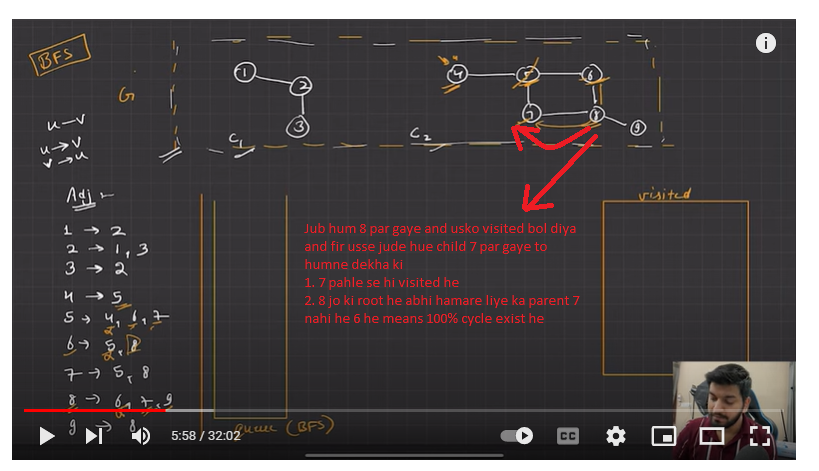 BFS
G
1
2
3
4
5
6
7
8
9
C1
C2
u — v
u → v
v → u
Adj :-
1 → 2
2 → 1, 3
3 → 2
4 → 5
5 → 4, 6, 7
6 → 5, 8
7 → 5, 8
8 → 6, 7, 9
9 → 8
visited
Jub hum 8 par gaye and usko visited bol diya
and fir usse jude hue child 7 par gaye to
humne dekha ki
1. 7 pahle se hi visited he
2. 8 jo ki root he abhi hamare liye ka parent 7
nahi he 6 he means 100% cycle exist he
queue (BFS)
5:58 / 32:02
CC
i